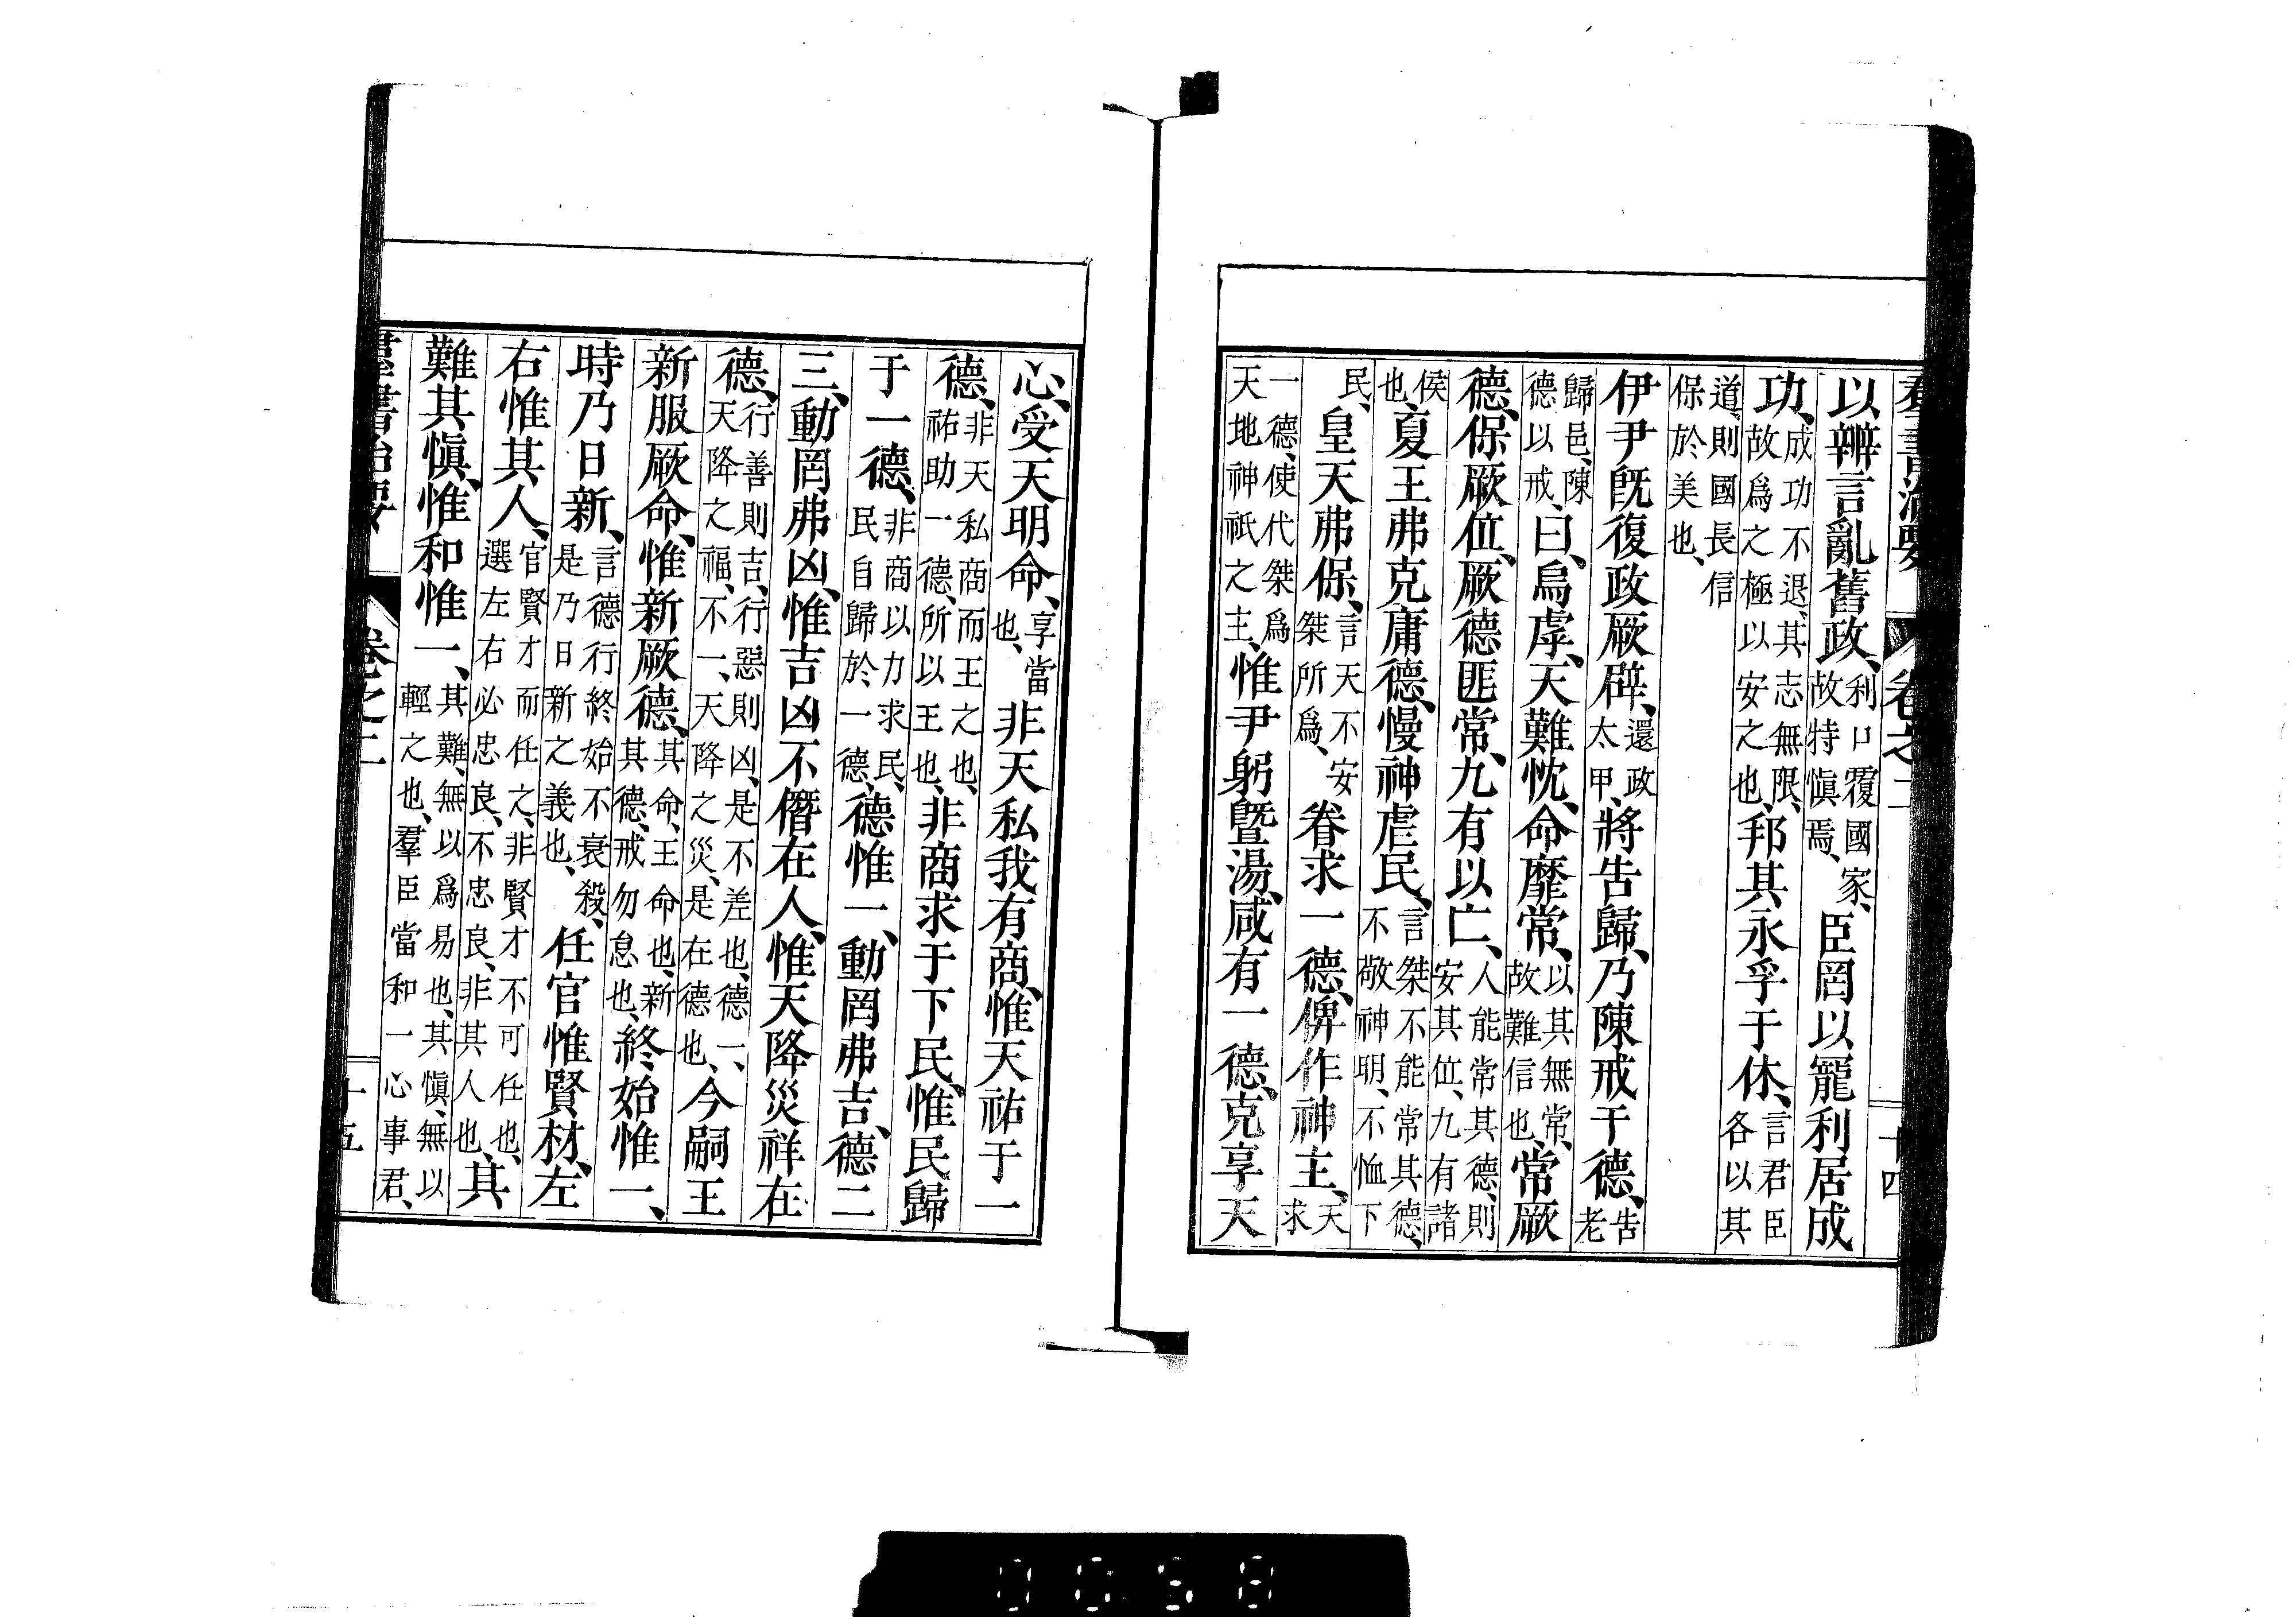 羣書治要 卷之二 十四
以辨言亂舊政、利口覆國家、故特愼焉、臣罔以寵利居成
功、成功不退、其志無限、故爲之極以安之也、邦其永孚于休、言君臣各以其
道、則國長信保於美也、
伊尹旣復政厥辟、還政太甲、將告歸、乃陳戒于德、告老
歸邑、陳德以戒、曰、烏虖、天難忱、命靡常、以其無常、故難信也、常厥
德、保厥位、厥德匪常、九有以亡、人能常其德、則安其位、九有諸
侯也、夏王弗克庸德、慢神虐民、言桀不能常其德、不敬神明、不恤下
民、皇天弗保、言天不安桀所爲、眷求一德、俾作神主、天求
一德、使代桀爲天地神祇之主、惟尹躬曁湯、咸有一德、克享天
心、受天明命、享當也、非天私我有商、惟天祐于一
德、非天私商而王之也、祐助一德、所以王也、非商求于下民、惟民歸
于一德、非商以力求民、民自歸於一德、德惟一、動罔弗吉、德二
三、動罔弗凶、惟吉凶不僭在人、惟天降災祥在
德、行善則吉、行惡則凶、是不差也、德一、天降之福、不一、天降之災、是在德也、今嗣王
新服厥命、惟新厥德、其命、王命也、新其德、戒勿怠也、終始惟一、
時乃日新、言德行終始不衰殺、是乃日新之義也、任官惟賢材、左
右惟其人、官賢才而任之、非賢才不可任也、選左右必忠良、不忠良、非其人也、其
難其愼、惟和惟一、其難、無以爲易也、其愼、無以輕之也、羣臣當和一心事君、
羣書治要 卷之二 十五
0058